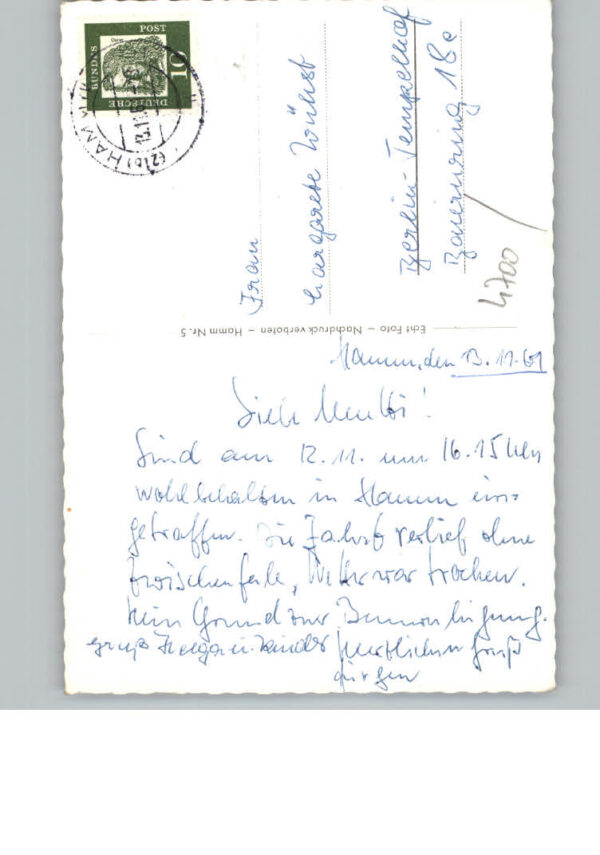 DEUTSCHE
BUNDES
POST
10
HAMM
Frau
Margarete Wühst
Berlin-Tempelhof
Bayernring 18a
4700
Echt Foto – Nachdruck verboten – Hamm Nr. 5
Hamm, den 13.11.61
Liebe Mutti!
Sind am 12.11. um 16.15 Uhr
wohlbehalten in Hamm ein-
getroffen. Die Fahrt verlief ohne
Zwischenfälle, Wetter war trocken.
Kein Grund zur Beunruhigung.
Gruß Helga u. Kinder
Herzlichen Gruß
Jürgen